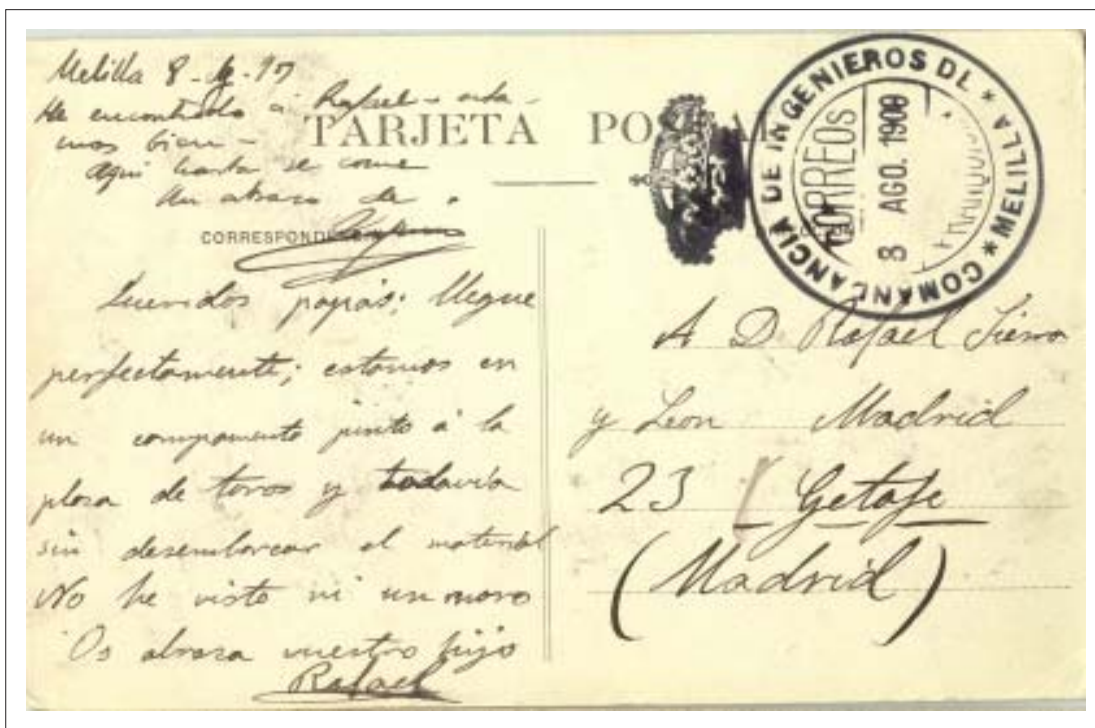 Melilla 8 - - 17
He encontrado a Rafael - esta-
mos bien -
Aqui hasta se come
Un abrazo de
TARJETA POSTAL
CORRESPONDENCIA
Queridos papás: llegue
perfectamente; estamos en
un campamento junto á la
plaza de toros y todavia
sin desembarcar el material
No he visto ni un moro
Os abraza vuestro hijo
Rafael
COMANDANCIA DE INGENIEROS DE * MELILLA *
CORREOS
8 AGO. 1909
A D. Rafael Sierra
y Leon Madrid
23 Getafe
(Madrid)